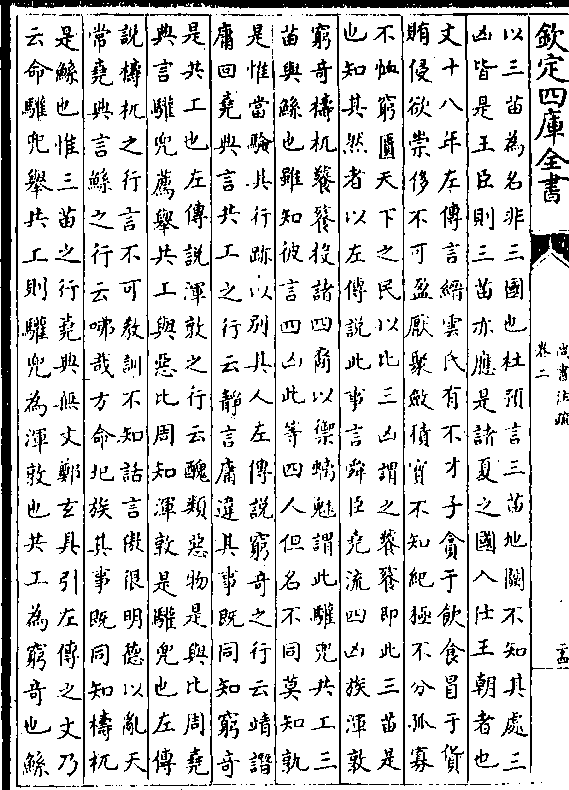 欽定四庫全書
尚書注疏
卷二
以三苗為名非三國也杜預言三苗地闕不知其處三
凶皆是王臣則三苗亦應是諸夏之國入仕王朝者也
文十八年左傳言縉雲氏有不才子貪于飲食冒于貨
賄侵欲崇侈不可盈厭聚斂積實不知紀極不分孤寡
不恤窮匱天下之民以比三凶謂之饕餮即此三苗是
也知其然者以左傳說此事言舜臣堯流四凶族渾敦
窮奇檮杌饕餮投諸四裔以禦螭魅謂此驩兜共工三
苗與鯀也雖知彼言四凶此等四人但名不同莫知孰
是惟當驗其行跡以別其人左傳說窮奇之行云靖譖
庸回堯典言共工之行云靜言庸違其事既同知窮奇
是共工也左傳說渾敦之行云醜類惡物是與比周堯
典言驩兜薦舉共工與惡比周知渾敦是驩兜也左傳
說檮杌之行言不可教訓不知話言傲很明德以亂天
常堯典言鯀之行云咈哉方命圮族其事既同知檮杌
是鯀也惟三苗之行堯典無文鄭玄具引左傳之文乃
云命驩兜舉共工則驩兜為渾敦也共工為窮奇也鯀